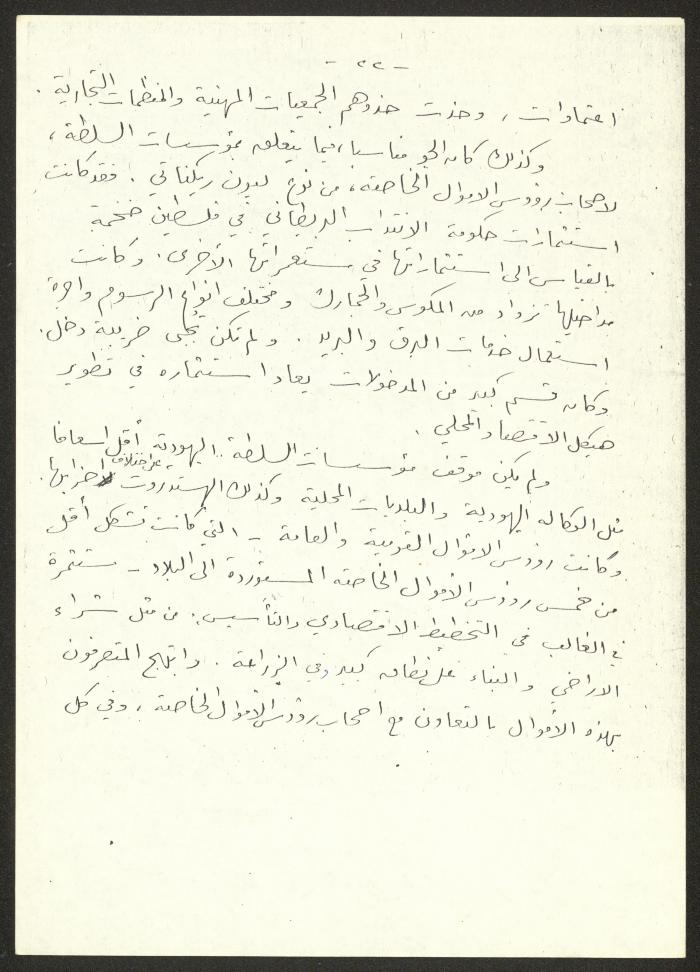 - ٢٢ -
اعتمادات ، وحذت حذوهم الجمعيات المهنية والمنظمات التجارية .
وكذلك كان الجو مناسبا ، فيما يتعلق بمؤسسات السلطة ،
لاصحاب رؤوس الاموال الخاصة ، من نوع ليون ريكناتي . فقد كانت
استثمارات حكومة الانتداب البريطاني في فلسطين ضخمة
بالقياس الى استثماراتها في مستعمراتها الأخرى . وكانت
مداخيلها تزداد من المكوس والجمارك ومختلف انواع الرسوم واجرة
استعمال خدمات البرق والبريد . ولم تكن تجبى ضريبة دخل .
وكان قسم كبير من المدخولات يعاد استثماره في تطوير
هيكل الاقتصاد المحلي .
ولم يكن موقف مؤسسات السلطة اليهودية أقل اسعافا
مثل الوكالة اليهودية والبلديات المحلية وكذلك الهستدروت على اختلاف احزابها .
وكانت رؤوس الاموال القومية والعامة - التي كانت تشكل أقل
من خمس رؤوس الأموال الخاصة المستوردة الى البلاد - مستثمرة
في الغالب في التخطيط الاقتصادي والتأسيس ، من مثل شراء
الاراضي والبناء على نطاق كبير وفي الزراعة . وابتهج المتصرفون
بهذه الأموال بالتعاون مع اصحاب رؤوس الأموال الخاصة ، وفي كل